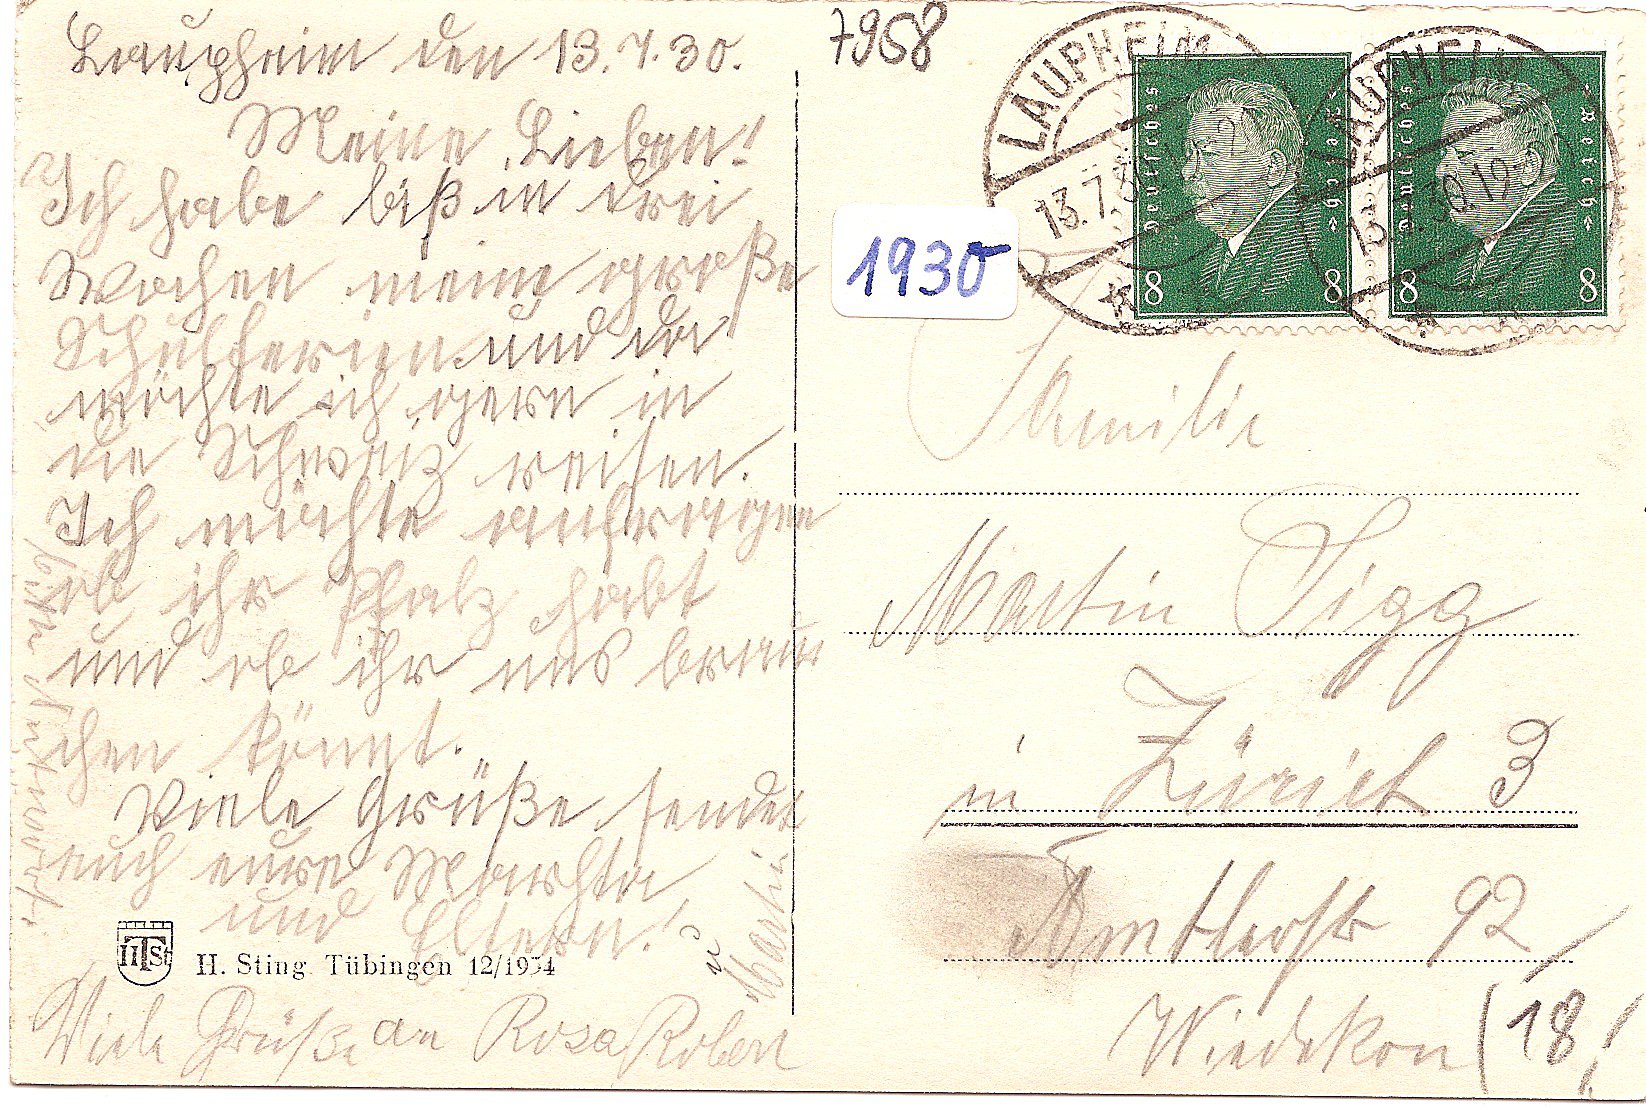 Laupheim den 13.7.30.
Meine Lieben!
Ich habe biß in drei
Wochen meine große
Schulferien und da
möchte ich gern in
die Schweiz reisen.
Ich möchte anfragen
ob ihr Platz habt
und ob ihr uns brau
chen könnt.
Viele Grüße sendet
euch eure Martha
und Eltern!
u Martin
bitte Antwort.
H. Sting Tübingen 12/1954
HTSt
Viele Grüße an Rosa Robert
7958
1930
LAUPHEIM
13.7.3
LAUPHEIM
30.19
Deutsches Reich
8 8
Deutsches Reich
8 8
Familie
Martin Sigg
in Zürich 3
Amtlerstr 92
Wiedikon (18)